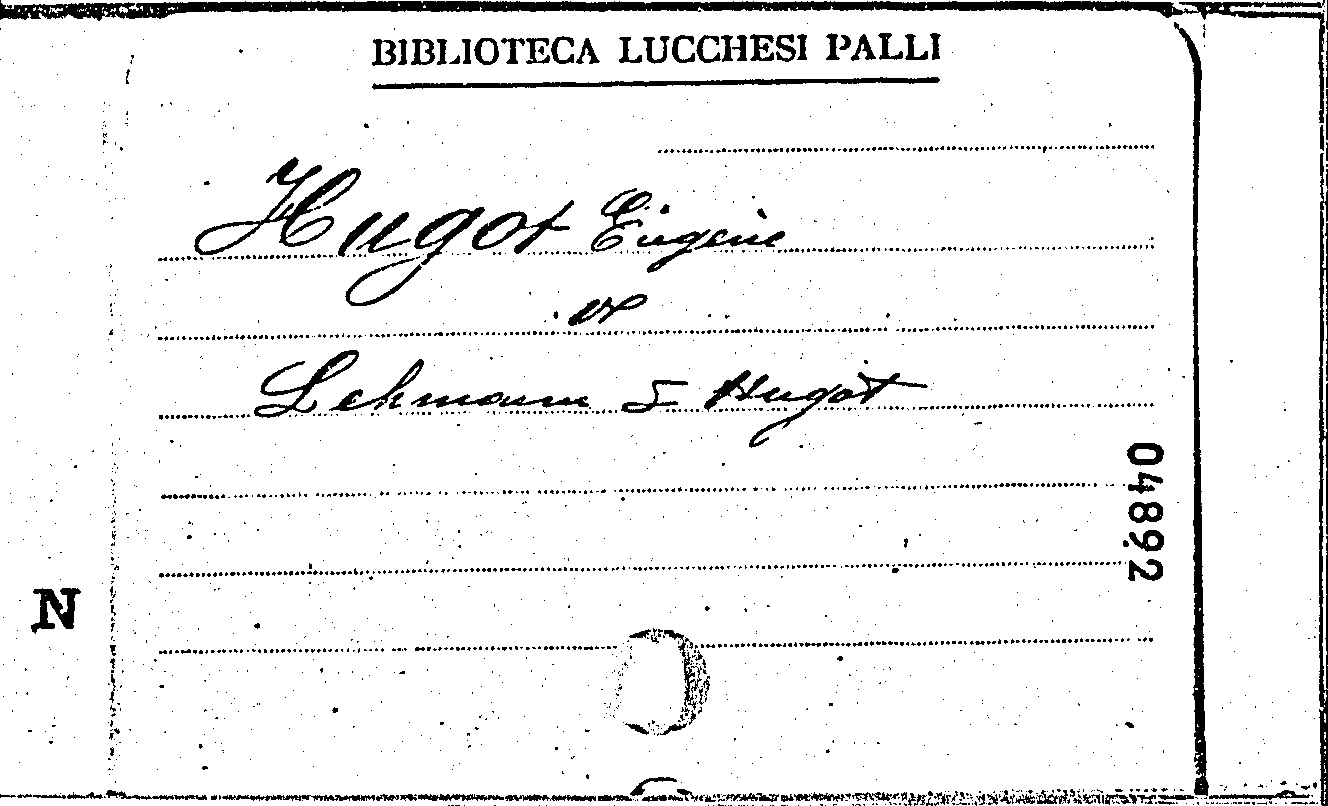 BIBLIOTECA LUCCHESI PALLI
Hugot Eugène
v
Lehmann S Hugot
04892
N